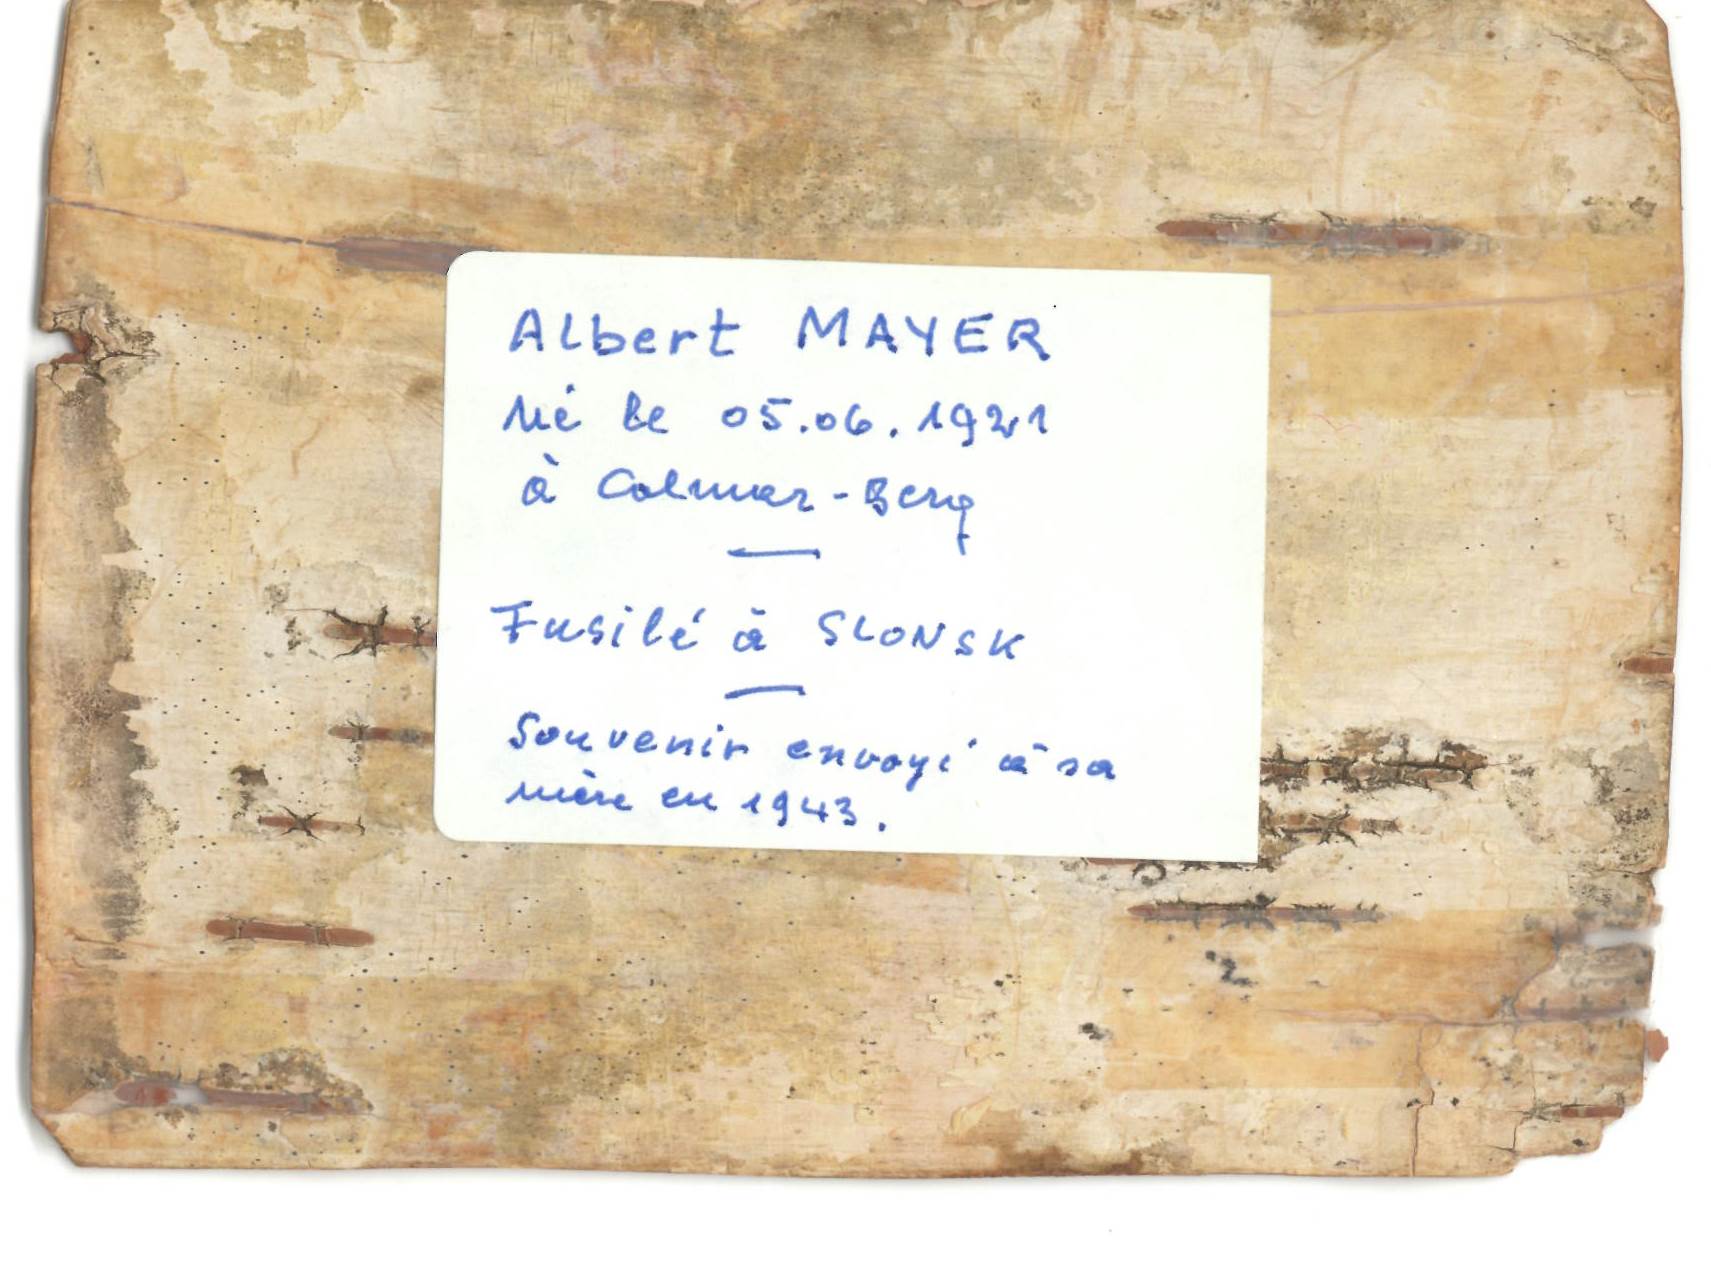 Albert MAYER
Né le 05.06.1921
à Colmar-Berg
Fusilé à SLONSK
Souvenir envoyé à sa
mère en 1943.